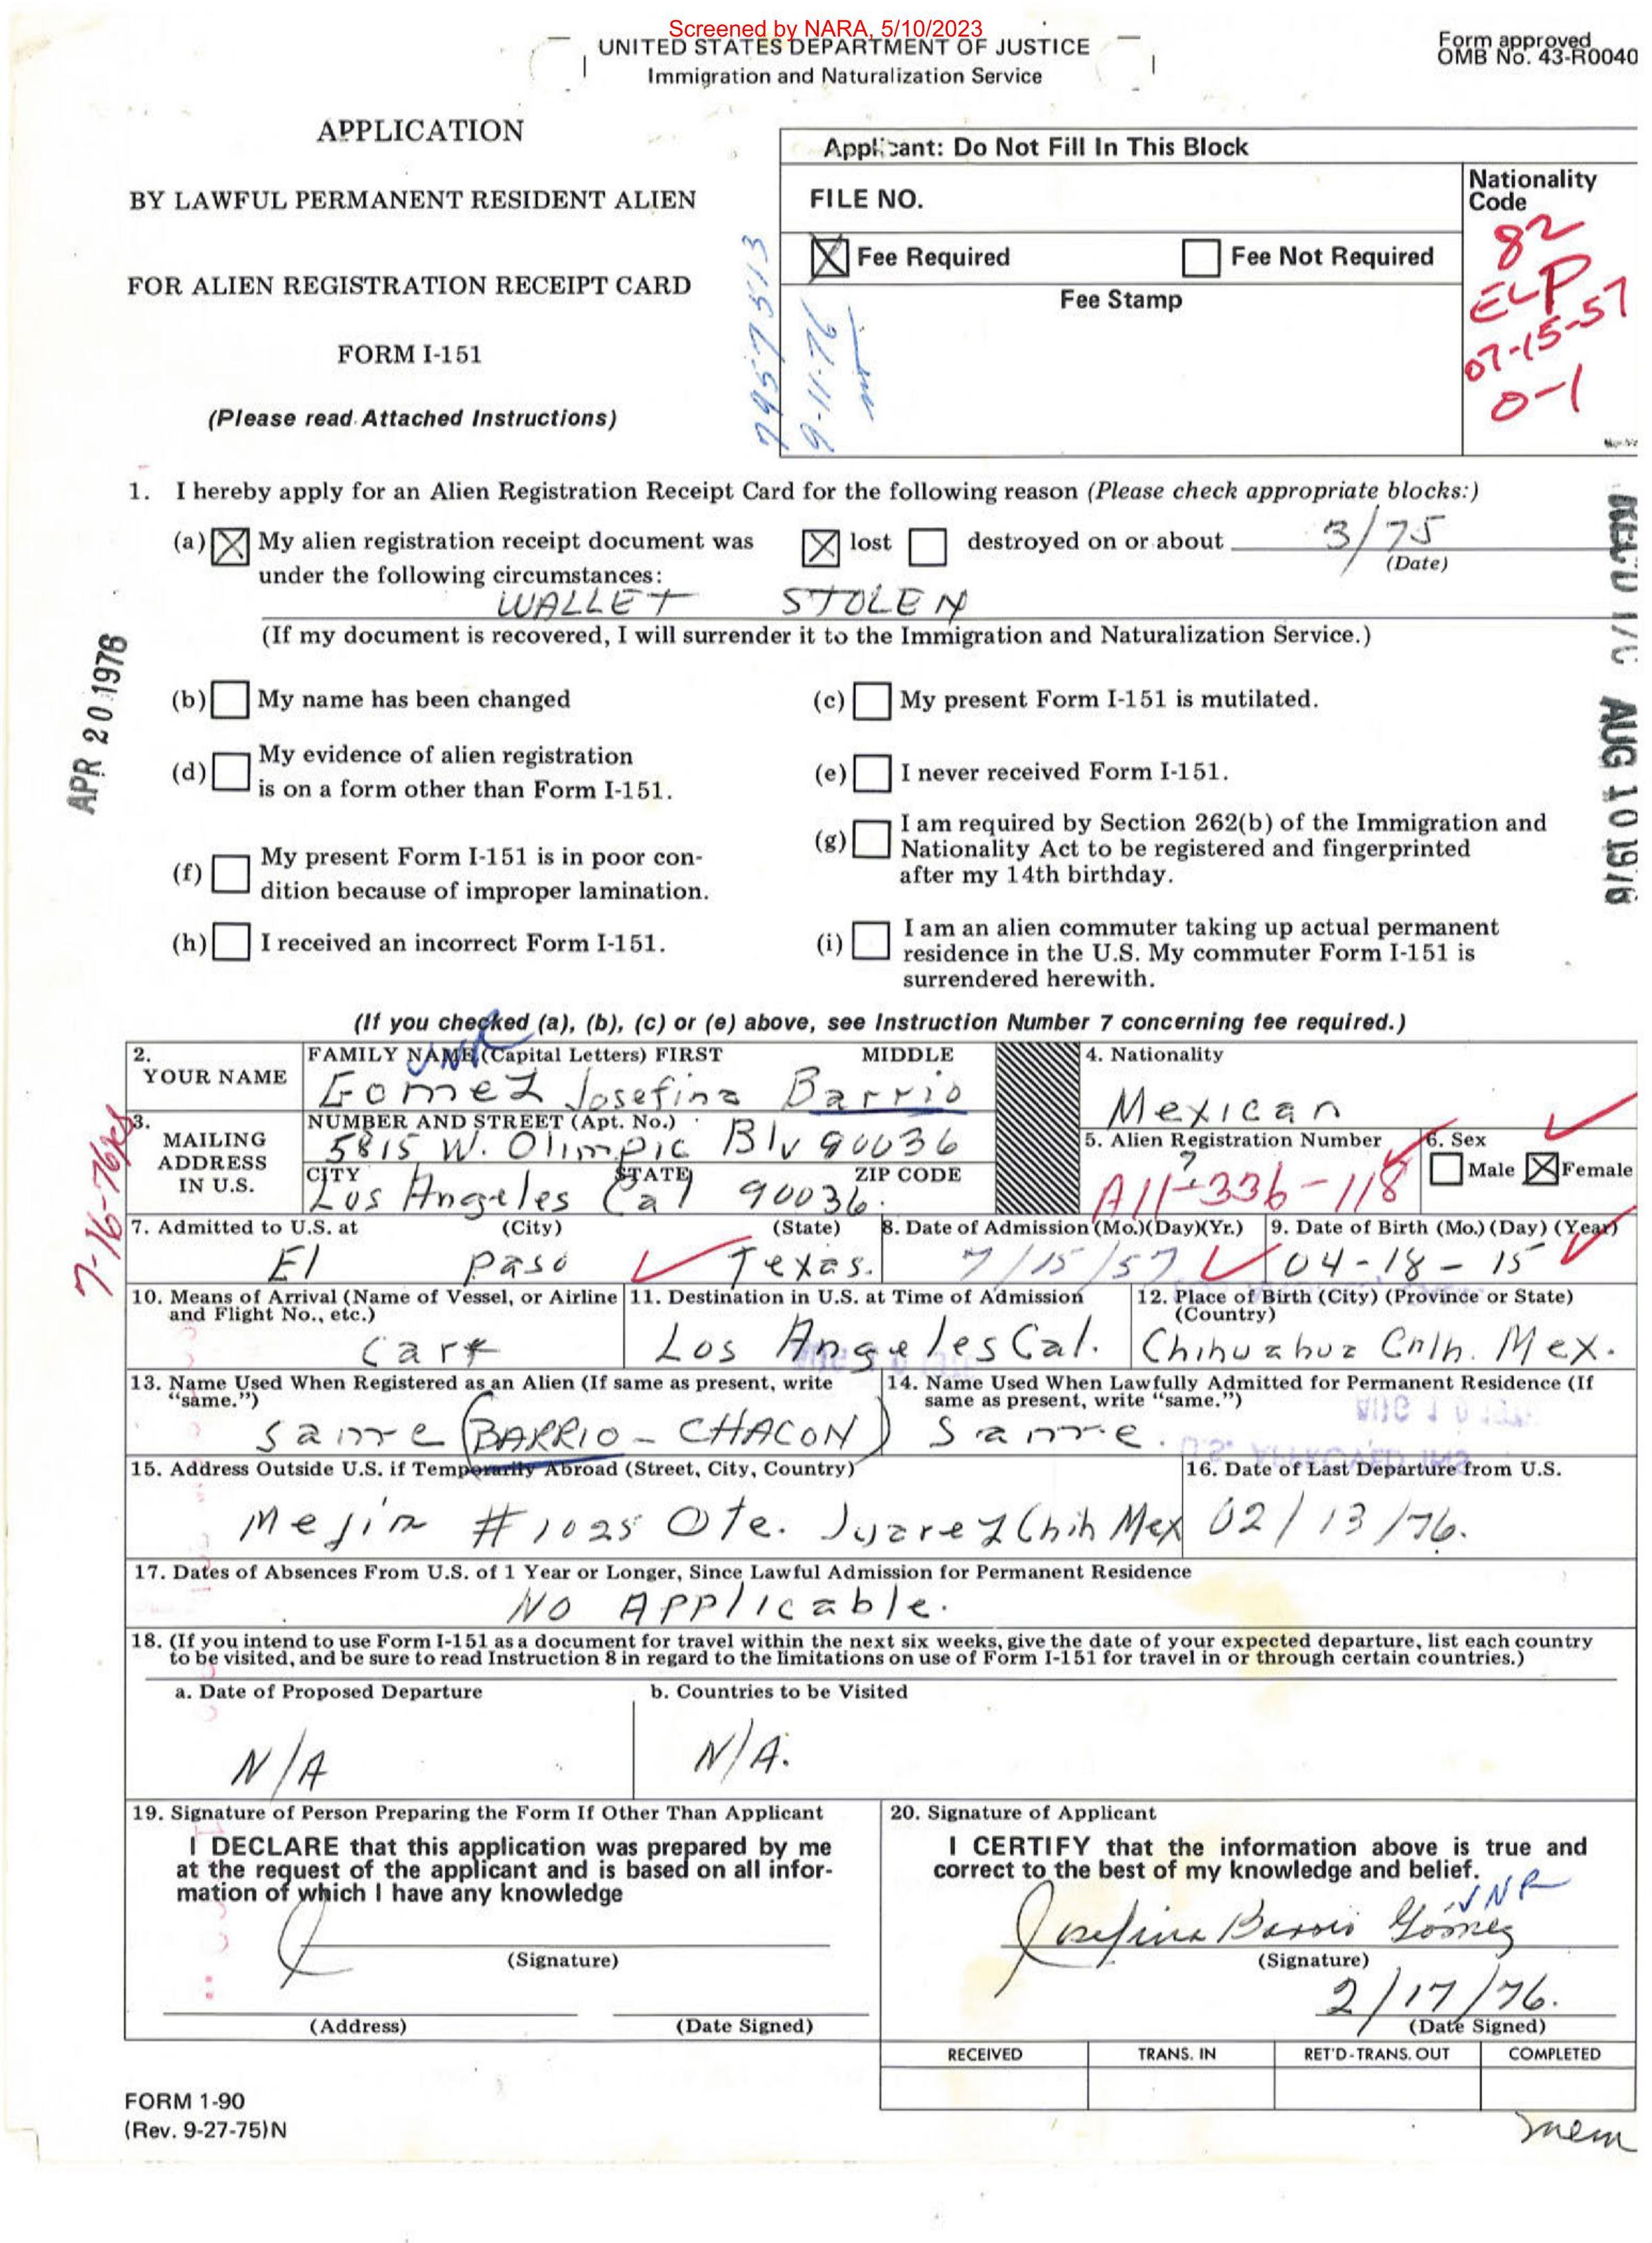 Screened by NARA, 5/10/2023
UNITED STATES DEPARTMENT OF JUSTICE
Immigration and Naturalization Service
Form approved
OMB No. 43-R0040
APPLICATION
BY LAWFUL PERMANENT RESIDENT ALIEN
FOR ALIEN REGISTRATION RECEIPT CARD
FORM I-151
(Please read Attached Instructions)
Applicant: Do Not Fill In This Block
FILE NO.
Nationality
Code
82
ELP
07-15-57
0-1
Fee Required
Fee Not Required
Fee Stamp
9-11-76
1. I hereby apply for an Alien Registration Receipt Card for the following reason (Please check appropriate blocks:)
(a) My alien registration receipt document was lost destroyed on or about 3/75
(Date)
under the following circumstances:
WALLET STOLEN
(If my document is recovered, I will surrender it to the Immigration and Naturalization Service.)
APR 20 1976
REC'D
AUG 10 1976
(b) My name has been changed
(c) My present Form I-151 is mutilated.
(d) My evidence of alien registration
is on a form other than Form I-151.
(e) I never received Form I-151.
(f) My present Form I-151 is in poor con-
dition because of improper lamination.
(g) I am required by Section 262(b) of the Immigration and
Nationality Act to be registered and fingerprinted
after my 14th birthday.
(h) I received an incorrect Form I-151.
(i) I am an alien commuter taking up actual permanent
residence in the U.S. My commuter Form I-151 is
surrendered herewith.
(If you checked (a), (b), (c) or (e) above, see Instruction Number 7 concerning fee required.)
2. YOUR NAME
FAMILY NAME (Capital Letters) FIRST MIDDLE
UNR
Gomez Josefina Barrio
4. Nationality
Mexican
3. MAILING
ADDRESS
IN U.S.
NUMBER AND STREET (Apt. No.)
5815 W. Olimpic Blv 90036
CITY STATE ZIP CODE
Los Angeles Cal 90036.
5. Alien Registration Number
?
A11-336-118
6. Sex
Male Female
7-16-76
7. Admitted to U.S. at (City) (State)
El Paso Texas.
8. Date of Admission (Mo.)(Day)(Yr.)
7/15/57
9. Date of Birth (Mo.) (Day) (Year)
04-18-15
10. Means of Arrival (Name of Vessel, or Airline
and Flight No., etc.)
Carr
11. Destination in U.S. at Time of Admission
Los Angeles Cal.
12. Place of Birth (City) (Province or State)
(Country)
Chihuahua Chih. Mex.
13. Name Used When Registered as an Alien (If same as present, write
"same.")
Same (BARRIO - CHACON)
14. Name Used When Lawfully Admitted for Permanent Residence (If
same as present, write "same.")
Same.
15. Address Outside U.S. if Temporarily Abroad (Street, City, Country)
Mejia #1025 Ote. Juarez Chih Mex
16. Date of Last Departure from U.S.
02/13/76.
17. Dates of Absences From U.S. of 1 Year or Longer, Since Lawful Admission for Permanent Residence
No Applicable.
18. (If you intend to use Form I-151 as a document for travel within the next six weeks, give the date of your expected departure, list each country
to be visited, and be sure to read Instruction 8 in regard to the limitations on use of Form I-151 for travel in or through certain countries.)
a. Date of Proposed Departure
N/A
b. Countries to be Visited
N/A.
19. Signature of Person Preparing the Form If Other Than Applicant
I DECLARE that this application was prepared by me
at the request of the applicant and is based on all infor-
mation of which I have any knowledge
(Signature)
(Address) (Date Signed)
20. Signature of Applicant
I CERTIFY that the information above is true and
correct to the best of my knowledge and belief.
UNR
Josefina Barrio Gómez
(Signature)
2/17/76.
(Date Signed)
RECEIVED TRANS. IN RET'D-TRANS. OUT COMPLETED
FORM 1-90
(Rev. 9-27-75)N